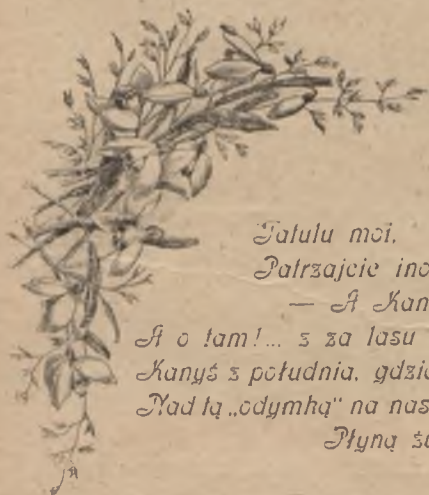 Tatulu moi,
Patrzajcie ino
— A Kan
A o tam!... z za lasu
Kanyś z południa, gdzie
Nad tą „odymką" na nas
Płyną